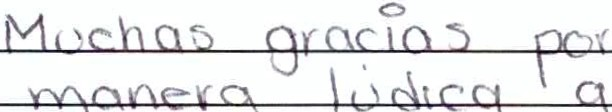 Muchas gracias por
manera lúdica a